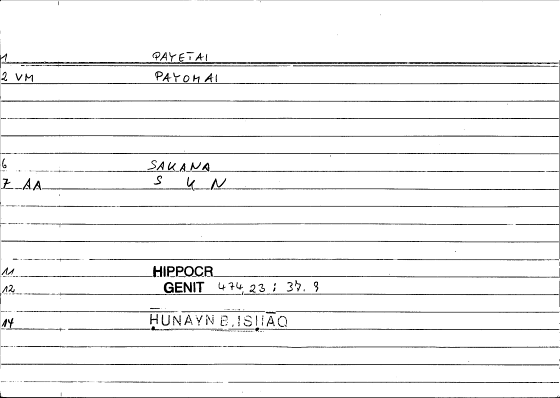 1 PAYETAI
2 VM PAYOMAI
6 SAKANA
7 AA S K N
11 HIPPOCR
12 GENIT 474,23 ; 37. 9
14 ḤUNAYN B.ISḤĀQ